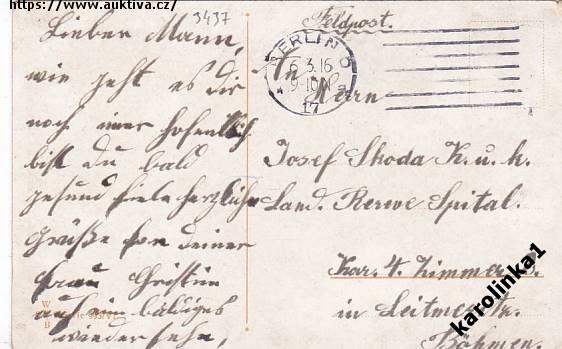 https://www.auktiva.cz/
3437
Lieber Mann,
wie geht es dir
noch imer hofentlich
bist Du bald
gesund fiele herzliche
Grüße fon deiner
frau Christine
auf ein baldiges
wiedersehn,
W
B
Feldpost.
BERLIN
6.3.16
9-10 N
17
An Herrn
Josef Skoda K. u. k.
Land. Rerwe Spital.
Kar. 4. Zimmer
in Leitmeritz.
Böhmen.
karolinka1